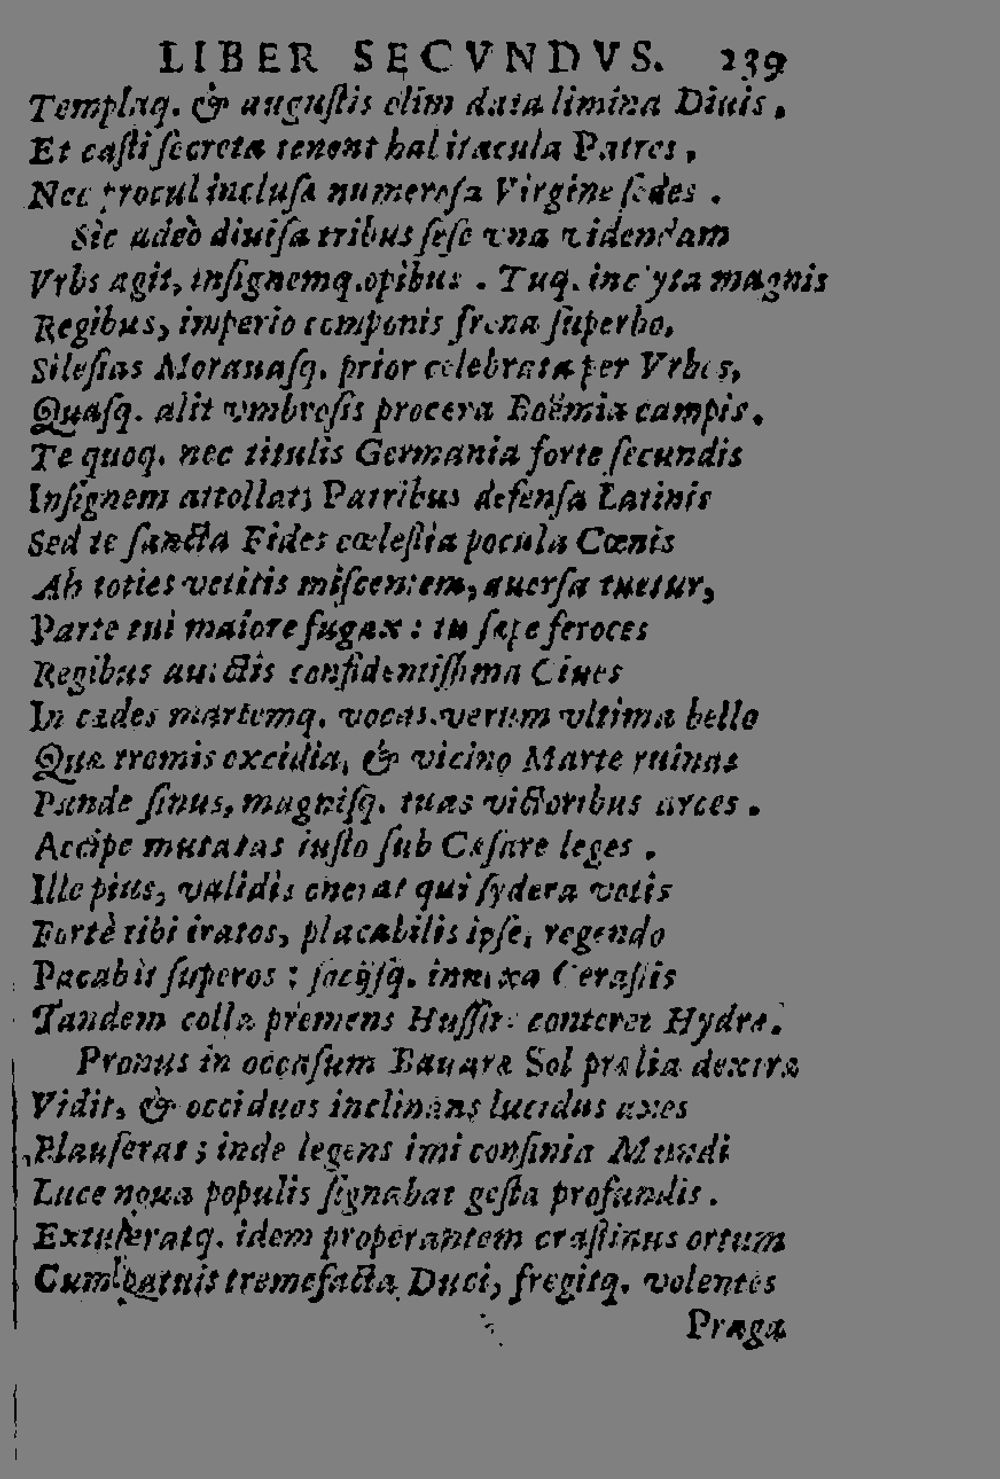 LIBER SECVNDVS. 239
Templaq. & auguſtis olim data limina Diuis.
Et caſti ſecreta tenent habitacula Patres,
Nec procul incluſa numeroſa Virgine ſedes.
Sic adeò diuiſa tribus ſeſe vna videndam
Vrbs agit, inſignemq. opibus. Tuq. inclyta magnis
Regibus, imperio componis frena ſuperbo,
Sileſias Morauaſq. prior celebrata per Vrbes,
Quaſq. alit vmbroſis procera Boëmia campis.
Te quoq. nec titulis Germania forte ſecundis
Inſignem attollat; Patribus defenſa Latinis
Sed te ſancta Fides cœleſtia pocula Cœnis
Ah toties vetitis miſcentem, auerſa tuetur,
Parte tui maiore fugax: tu ſæpe feroces
Regibus auctis confidentiſſima Ciues
In cædes martemq. vocas. verum vltima bello
Quæ tremis excidia, & vicino Marte ruinas
Pande ſinus, magniſq. tuas victoribus arces.
Accipe mutatas iuſto ſub Cæſare leges.
Ille pius, validis onerat qui ſydera votis
Fortè tibi iratos, placabilis ipſe, regendo
Pacabit ſuperos: ſocijſq. innixa Ceraſtis
Tandem colla premens Huſſitæ conteret Hydræ.
Pronus in occaſum Bauaræ Sol prælia dextræ
Vidit, & occiduos inclinans lucidus axes
Plauſerat; inde legens imi confinia Mundi
Luce noua populis ſignabat geſta profundis.
Extuleratq. idem properantem craſtinus ortum
Cum tremefacta Duci, fregitq. volentes
Præga